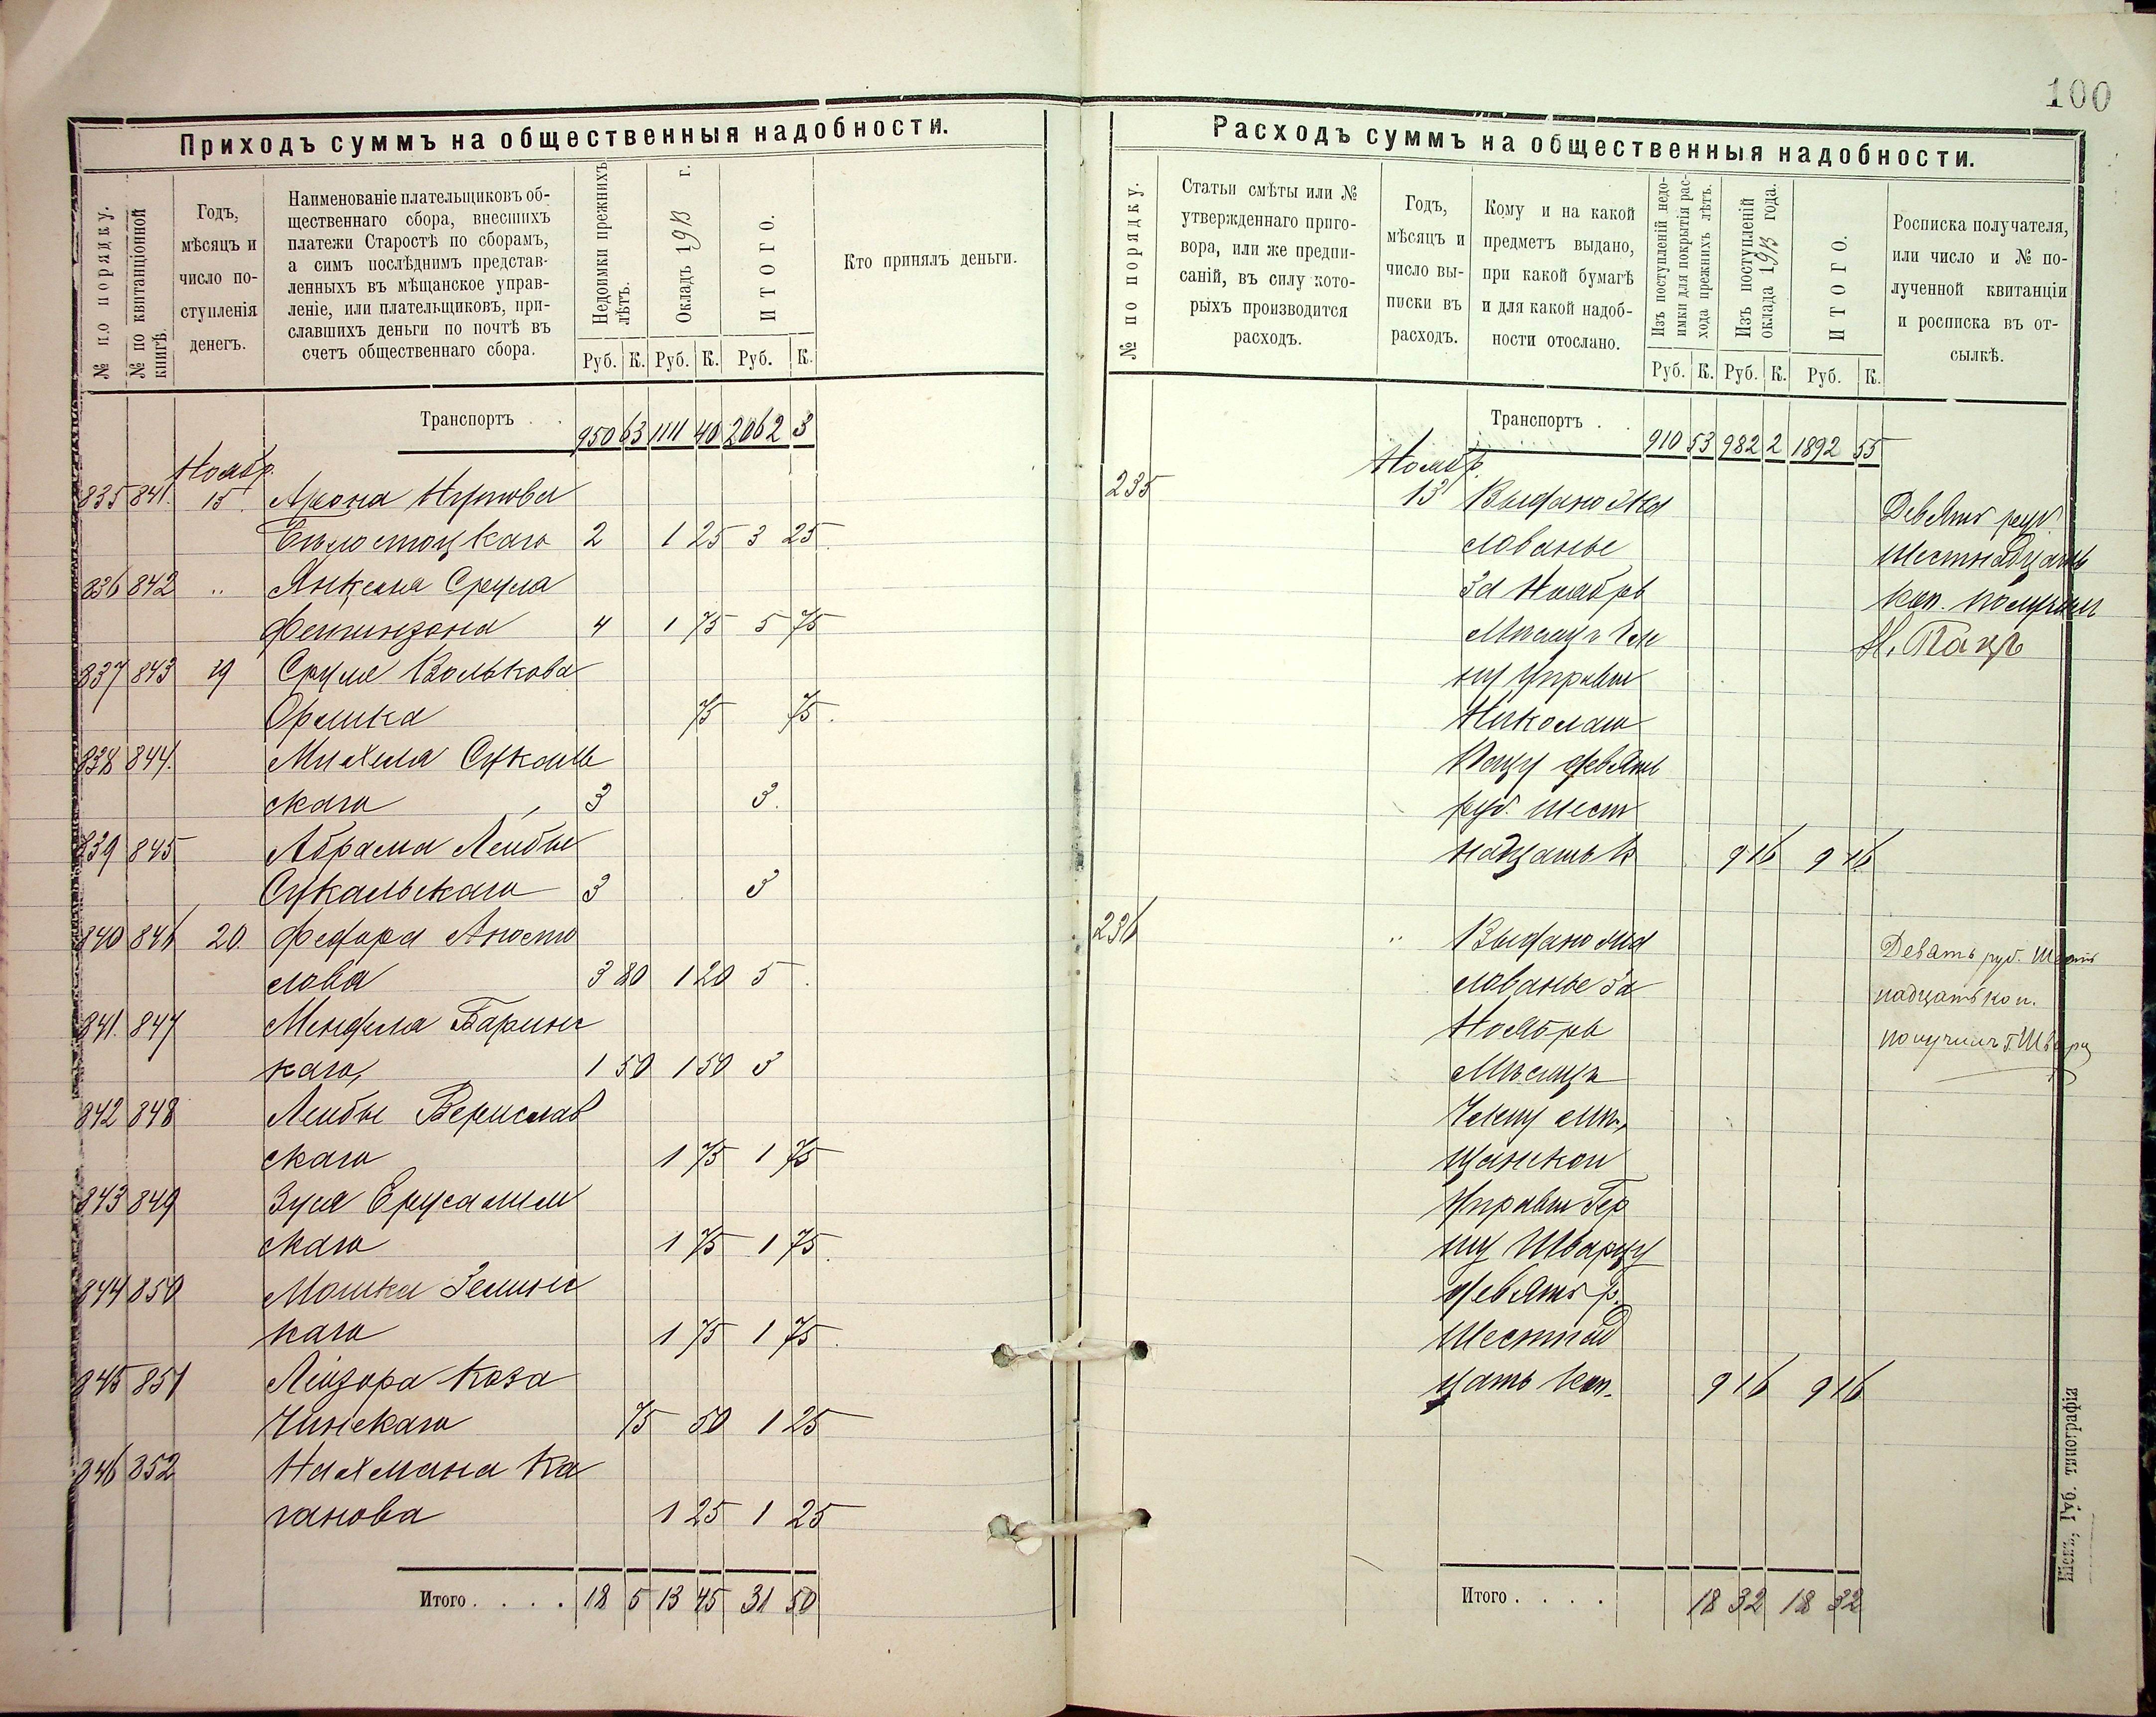 100
Приходъ суммъ на общественныя надобности.
№ по порядку.
№ по квитанціонной книгѣ.
Годъ,
мѣсяцъ и
число по-
ступленія
денегъ.
Наименованіе плательщиковъ об-
щественнаго сбора, внесшихъ
платежи Старостѣ по сборамъ,
а симъ послѣднимъ представ-
ленныхъ въ мѣщанское управ-
леніе, или плательщиковъ, при-
славшихъ деньги по почтѣ въ
счетъ общественнаго сбора.
Недоимки прежнихъ лѣтъ.
Окладъ 1913 г.
ИТОГО.
Руб. К. Руб. К. Руб. К.
Кто принялъ деньги.
Транспортъ . . 950 63 1111 40 2062 3
Ноябр.
835 841. 15. Арона
Бѣлостоцкаго 2 1 25 3 25.
836 842 „ Янкеля Срула
4 1 75 5 75
837 843 19 Сруля Волькова
75 75.
838 844. Михеля
скаго 3 3.
839 845 Абрама Лейбы
3 3
840 846 20. Федора Апосто
лова 3 80 1 20 5.
841. 847 Менделя Баринс
каго, 1 50 1 50 3
842 848 Лейбы Берислав
скаго 1 75 1 75
843 849 Зуся Ерусалим
скаго 1 75 1 75.
844 850 Мошки
каго 1 75 1 75.
845 851 Лейзора Коза
чинскаго 75 50 1 25
846 852 Нахмана Ка
ганова 1 25 1 25
Итого . . . . 18 5 13 45 31 50
Расходъ суммъ на общественныя надобности.
№ по порядку.
Статьи смѣты или №
утвержденнаго приго-
вора, или же предпи-
саній, въ силу кото-
рыхъ производится
расходъ.
Годъ,
мѣсяцъ и
число вы-
писки въ
расходъ.
Кому и на какой
предметъ выдано,
при какой бумагѣ
и для какой надоб-
ности отослано.
Изъ поступленій недо-
имки для покрытія рас-
хода прежнихъ лѣтъ.
Изъ поступленій
оклада 1913 года.
ИТОГО.
Руб. К. Руб. К. Руб. К.
Росписка получателя,
или число и № по-
лученной квитанціи
и росписка въ от-
сылкѣ.
Транспортъ . . 910 53 982 2 1892 55
Ноябр.
235 13 Выдано жа
лованье
за Ноябрь
Мѣсяцъ Чле
ну Управы
Николаю
Пацу девять
руб. шест
надцать к 9 16 9 16
Девять руб
шестнадцать
коп. получилъ
Н. Пацъ
236 „ Выдано жа
лованье за
Ноябрь
Мѣсяцъ
Члену Мѣ,
щанской
Управы Гер
шу Шварцу
девять р.
шестнад
цать коп. 9 16 9 16
Девять руб. шест
надцать коп.
получилъ Г. Шварц
Итого . . . . 18 32 18 32
Губ. типографія